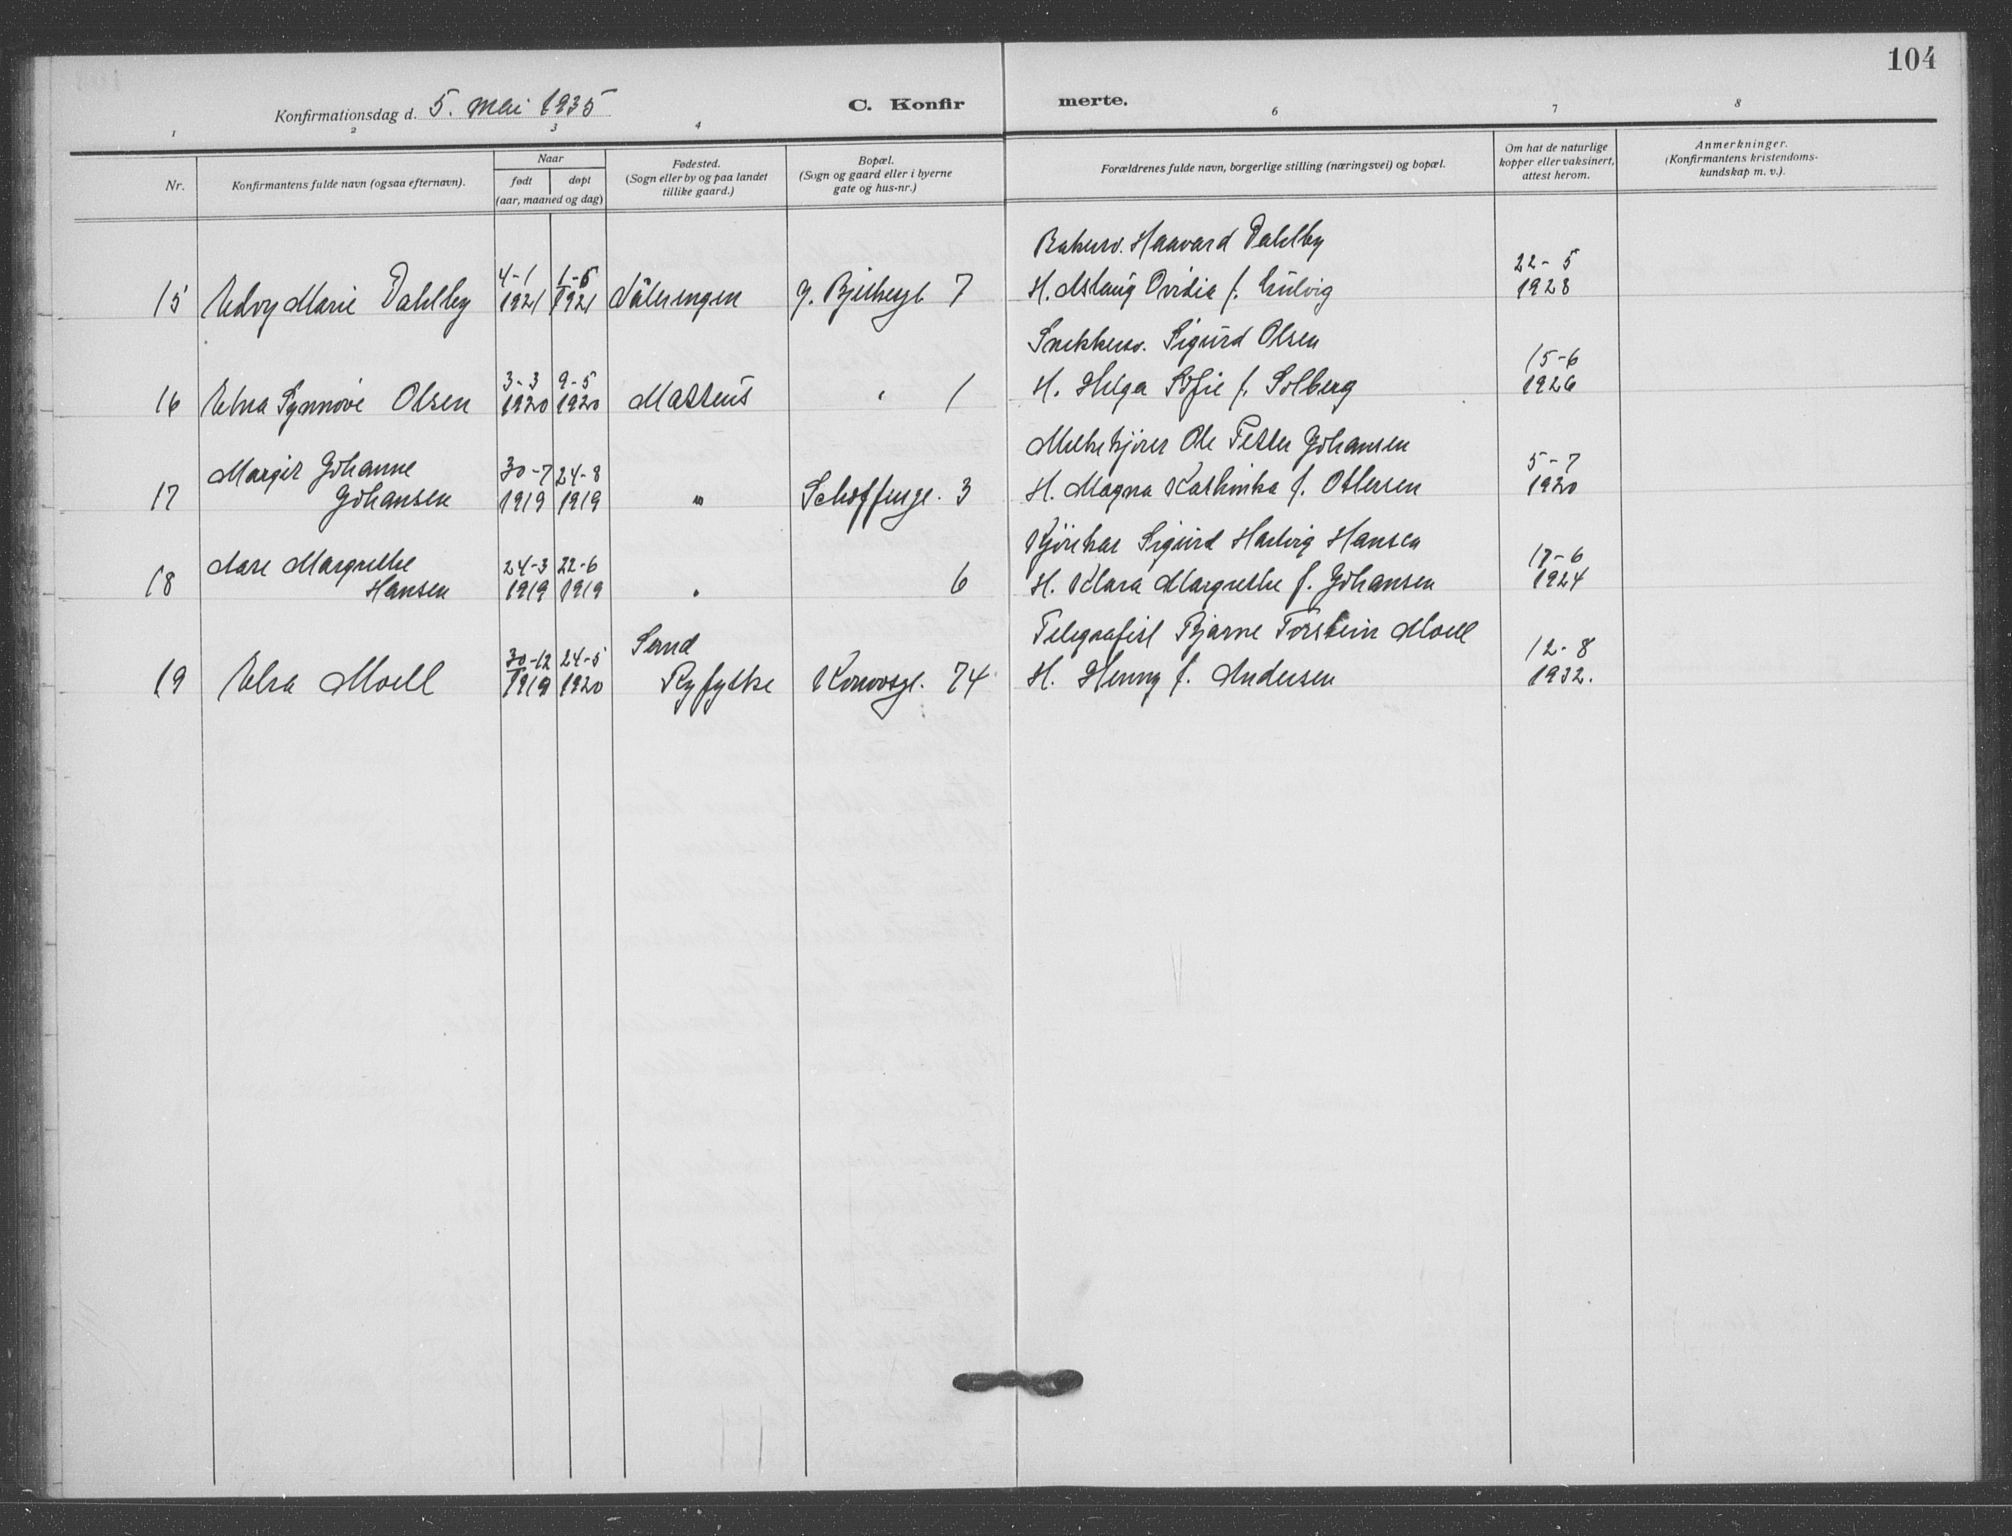 104
Konfirmationsdag d. 5. mai 1935
C. Konfir
merte.
1 2 3 4 6 7 8
Nr.
Konfirmantens fulde navn (ogsaa efternavn).
Naar
født døpt
(aar, maaned og dag)
Fødested.
(Sogn eller by og paa landet
tillike gaard.)
Bopæl.
(Sogn og gaard eller i byerne
gate og hus-nr.)
Forældrenes fulde navn, borgerlige stilling (næringsvei) og bopæl.
Om hat de naturlige
kopper eller vaksinert,
attest herom.
Anmerkninger.
(Konfirmantens kristendoms-
kundskap m. v.).
Haavard Dahlby
4-1 1-5 22-5
15 Marie Dahlby 1921 1921 Vålerengen 7 H. Aslaug Ovidia f. 1928
Snekkersv. Sigurd Olsen
3-3 9-5 15-6
16 Edna Synnøve Olsen 1920 1920 Matteus " 1 H. Helga Sofie f. Solberg 1926
Melkekjører Ole Petter Johansen
Margit Johanne 30-7 24-8 5-7
17 Johansen 1919 1919 " Schoffensg. 3 H. Magna Kathinka f. Ottersen 1920
Sigurd Hartvig Hansen
Aase Margrethe 24-3 22-6 17-6
18 Hansen 1919 1919 " 6 H. Klara Margrethe f. Johansen 1924
Telegrafist Bjarne Torstein Moell
Sand 30-12 24-5 12-8
19 Elsa Moell 1919 1920 Ryfylke 74 H. Henny f. Andersen 1932.